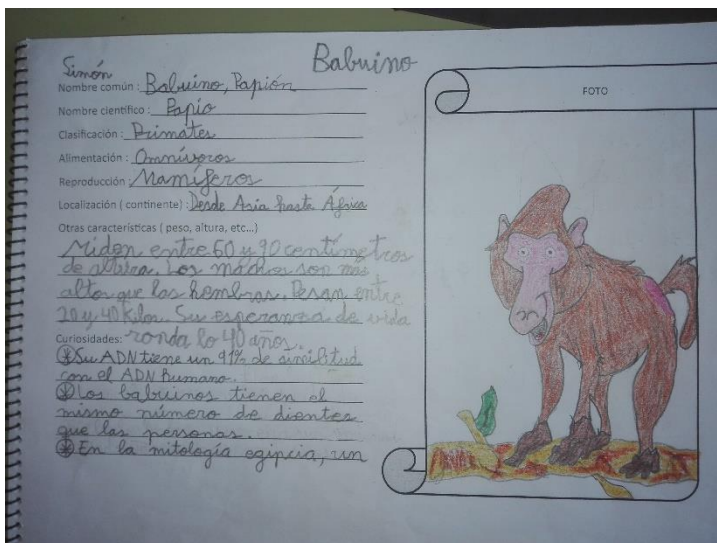 Babuino
Simón
Nombre común : Babuino, Papión
FOTO
Nombre científico : Papio
Clasificación : Primates
Alimentación : Omnívoros
Reproducción : Mamíferos
Localización ( continente) : Desde Asia hasta África
Otras características ( peso, altura, etc...)
Miden entre 60 y 90 centímetros
de altura. Los machos son más
altos que las hembras. Pesan entre
20 y 40 kilos. Su esperanza de vida
Curiosidades: ronda lo 40 años.
Su ADN tiene un 91% de similitud
con el ADN humano.
Los babuinos tienen el
mismo número de dientes
que las personas.
En la mitología egipcia, un